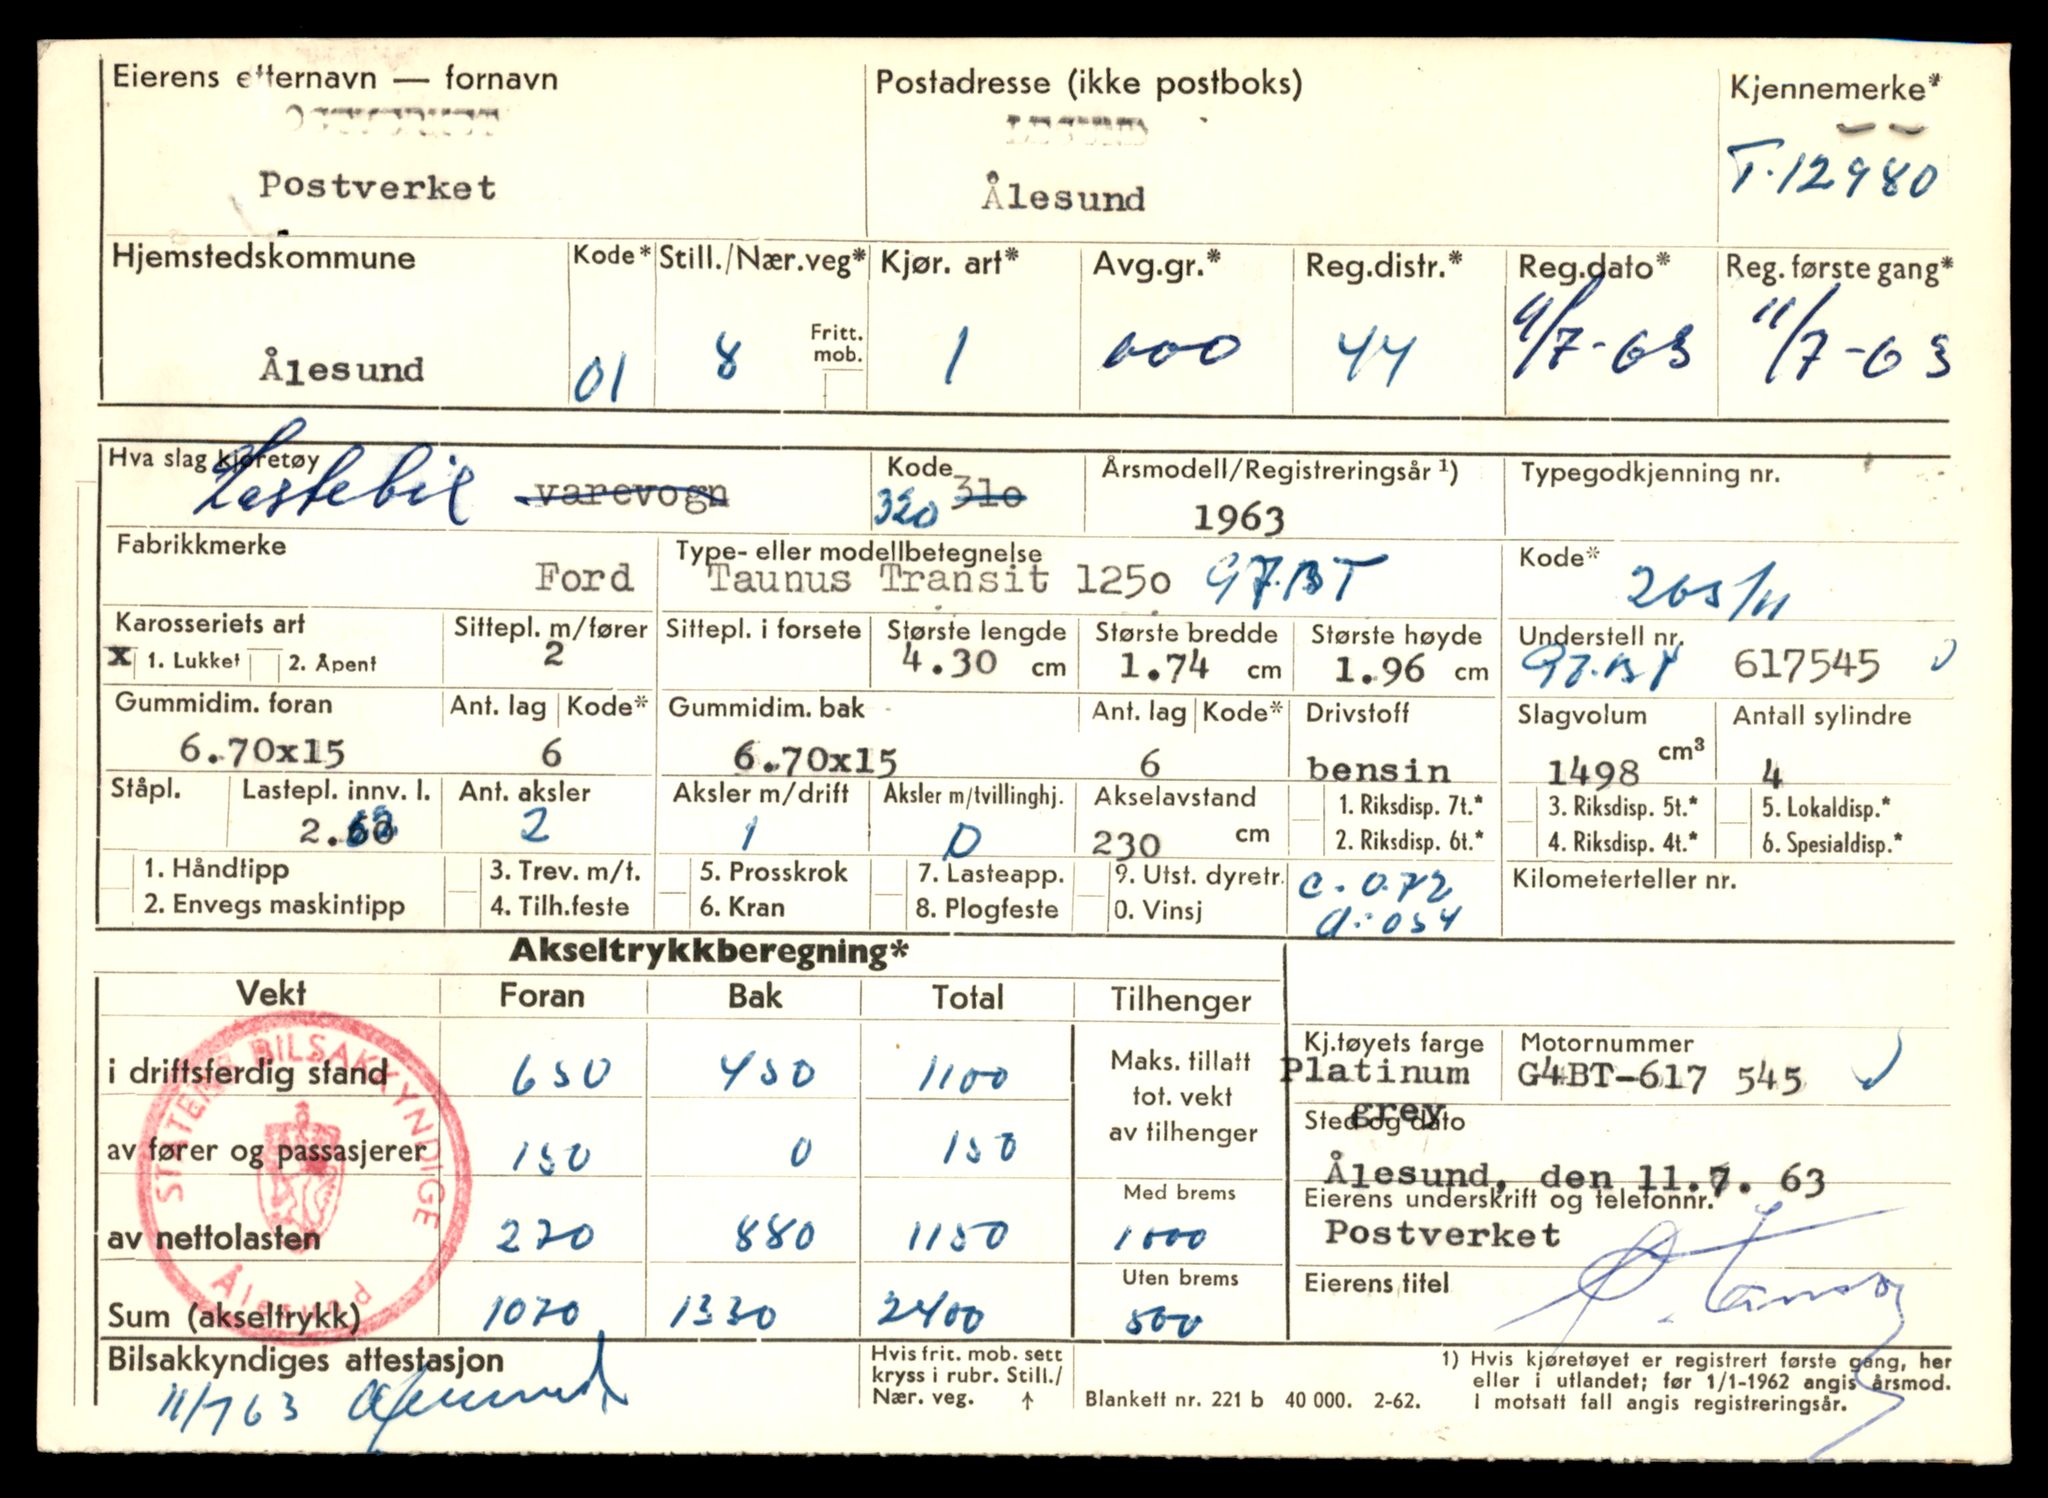 Eierens etternavn — fornavn
Postverket
Postadresse (ikke postboks)
Ålesund
Kjennemerke*
T-12980
Hjemstedskommune
Ålesund
Kode*
01
Still./Nær.veg*
8
Fritt. mob.
Kjør. art*
1
Avg.gr.*
000
Reg.distr.*
44
Reg.dato*
11/7-63
Reg. første gang*
11/7-63
Hva slag kjøretøy
Lastebil varevogn
Kode
320 310
Årsmodell/Registreringsår ¹)
1963
Typegodkjenning nr.
Fabrikkmerke
Ford
Type- eller modellbetegnelse
Taunus Transit 1250 G7.BT
Kode*
265/11
Karosseriets art
x 1. Lukket 2. Åpent
Sittepl. m/fører
2
Sittepl. i forsete
Største lengde
4.30 cm
Største bredde
1.74 cm
Største høyde
1.96 cm
Understell nr.
G7.BT 617545
Gummidim. foran
6.70x15
Ant. lag
6
Kode*
Gummidim. bak
6.70x15
Ant. lag
6
Kode*
Drivstoff
bensin
Slagvolum
1498 cm³
Antall sylindre
4
Ståpl.
Lastepl. innv. l.
Ant. aksler
2
Aksler m/drift
1
Aksler m/tvillinghj.
0
Akselavstand
230 cm
1. Riksdisp. 7t.*
2. Riksdisp. 6t.*
3. Riksdisp. 5t.*
4. Riksdisp. 4t.*
5. Lokaldisp.*
6. Spesialdisp.*
1. Håndtipp
2. Envegs maskintipp
3. Trev. m/t.
4. Tilh.feste
5. Prosskrok
6. Kran
7. Lasteapp.
8. Plogfeste
9. Utst. dyretr.
0. Vinsj
c. 072
d: 054
Kilometerteller nr.
Akseltrykkberegning*
Vekt Foran Bak Total Tilhenger
i driftsferdig stand 650 450 1100
Maks. tillatt
tot. vekt
av tilhenger
av fører og passasjerer 150 0 150
Med brems
av nettolasten 270 880 1150 1000
Uten brems
Sum (akseltrykk) 1070 1330 2400 500
STATENS BILSAKKYNDIGE
Ålesund
Kj.tøyets farge
Platinum
grey
Motornummer
G4BT-617 545
Sted og dato
Ålesund, den 11.7. 63
Eierens underskrift og telefonnr.
Postverket
Eierens titel
Bilsakkyndiges attestasjon
11/7 63
Hvis frit. mob. sett
kryss i rubr. Still./
Nær. veg. ↑
Blankett nr. 221 b 40 000. 2-62.
1) Hvis kjøretøyet er registrert første gang, her
eller i utlandet; før 1/1-1962 angis årsmod.
I motsatt fall angis registreringsår.